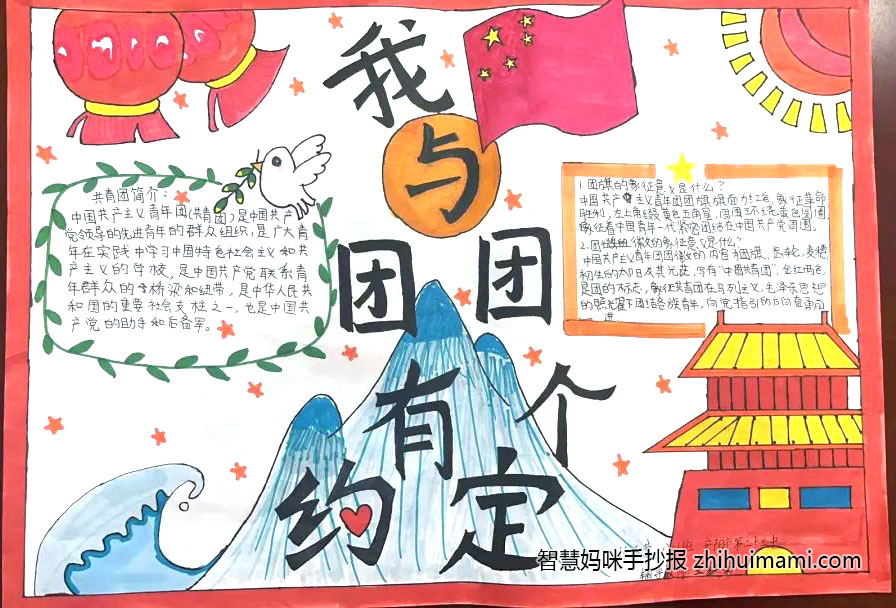 我
与
团 团
有 个
约 定
共青团简介:
中国共产主义青年团(共青团)是中国共产
党领导的先进青年的群众组织,是广大青
年在实践中学习中国特色社会主义和共
产主义的学校,是中国共产党联系青
年群众的桥梁和纽带,是中华人民共
和国的重要社会支柱之一,也是中国共
产党的助手和后备军。
1.团旗的象征意义是什么?
中国共产主义青年团团旗旗面为红色,象征革命
胜利,左上角缀黄色五角星,周围环绕黄色圆圈,
象征着中国青年一代紧密团结在中国共产党周围。
2.团徽的象征意义是什么?
中国共产主义青年团团徽的内容为团旗、齿轮、麦穗、
初生的太阳及其光芒,写有"中国共青团",
是团的标志,象征共青团在马列主义、毛泽东思想
的照耀下团结各族青年,向党指引的方向奋勇前
进
智慧妈咪手抄报 zhihuimami.com